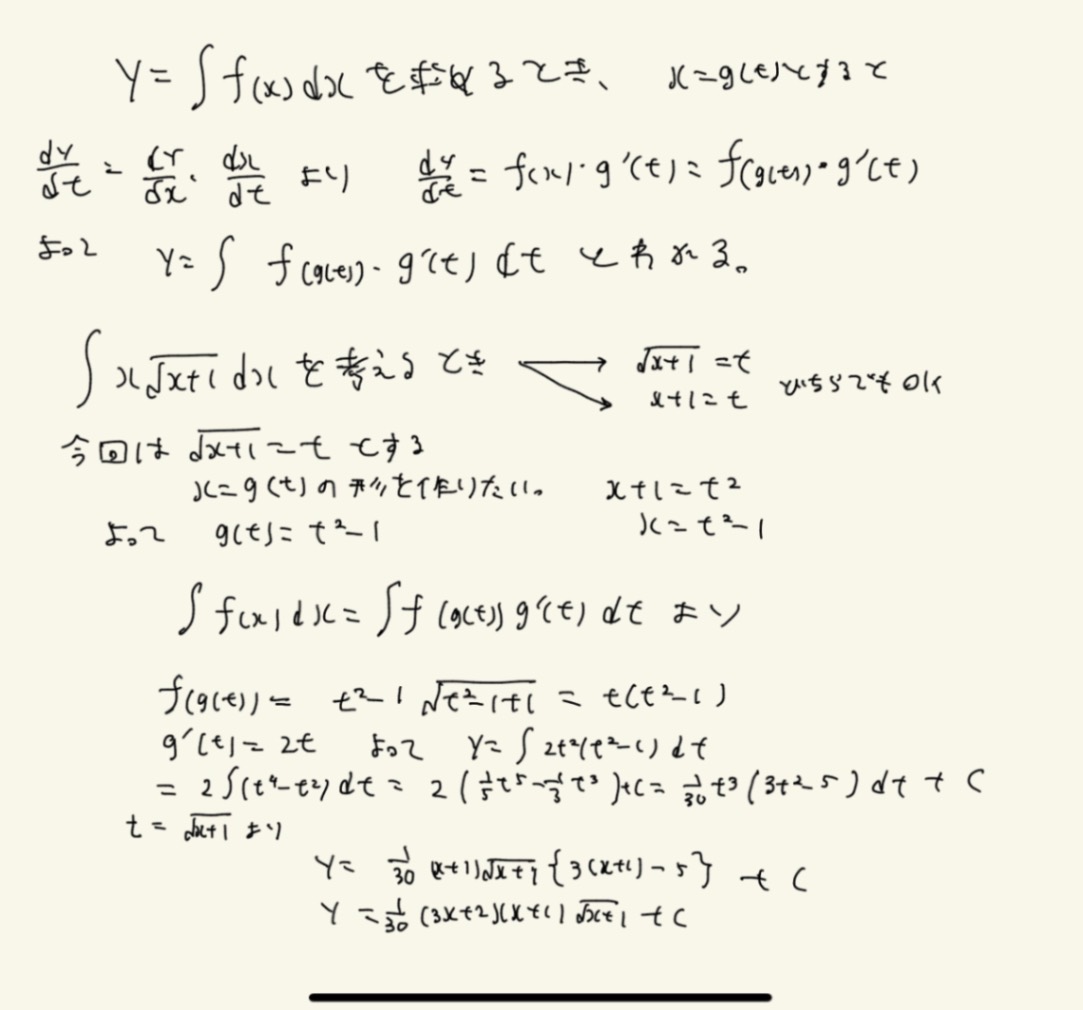 Y = ∫ f(x) dx を求めるとき、 x = g(t) とすると
dy/dt = dY/dx ・ dx/dt より dy/dt = f(x)・g'(t) = f(g(t))・g'(t)
よって Y = ∫ f(g(t))・g'(t) dt と表せる。
∫ x√(x+1) dx を考えるとき → √(x+1) = t
→ x+1 = t どちらでもOK
今回は √(x+1) = t とする
x = g(t) の形を作りたい。 x+1 = t²
よって g(t) = t²-1 x = t²-1
∫ f(x) dx = ∫ f(g(t)) g'(t) dt より
f(g(t)) = t²-1 √(t²-1+1) = t(t²-1)
g'(t) = 2t よって Y = ∫ 2t²(t²-1) dt
= 2∫(t⁴-t²) dt = 2(1/5 t⁵ - 1/3 t³)+C = 1/30 t³(3t²-5) dt + C
t = √(x+1) より
Y = 1/30 (x+1)√(x+1) {3(x+1)-5} + C
Y = 1/30 (3x+2)(x+1)√(x+1) + C